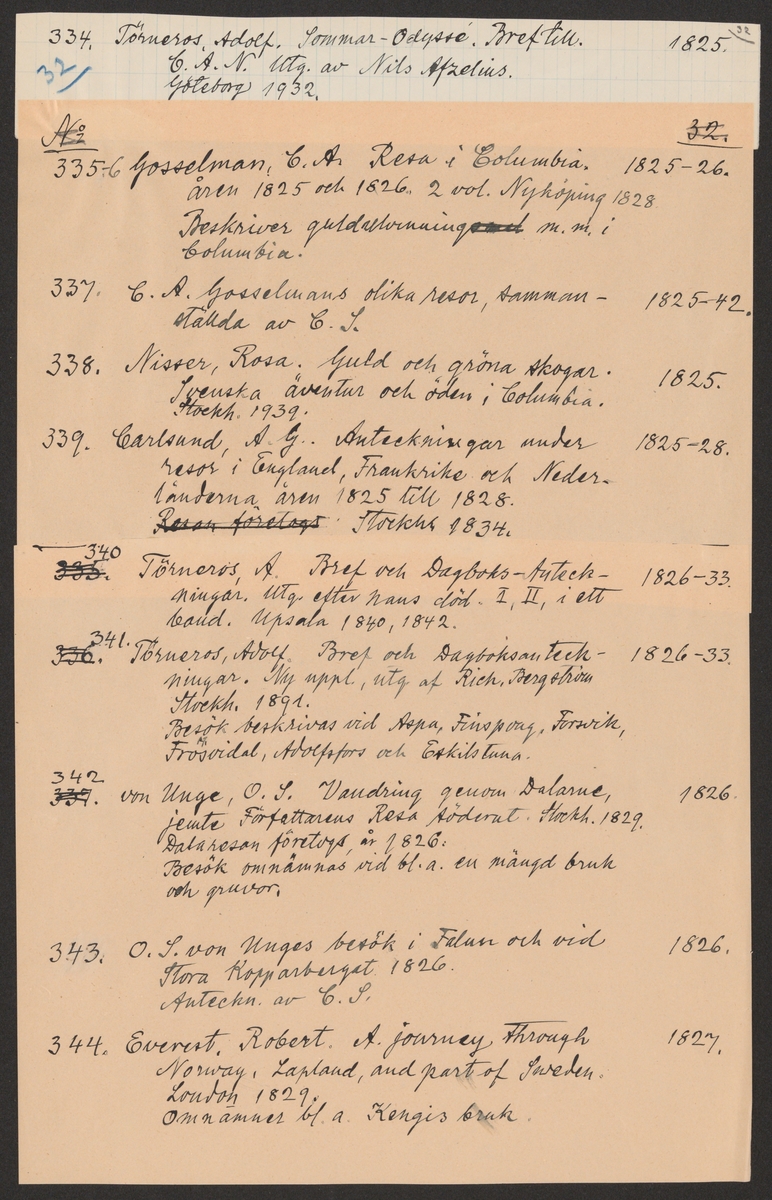 32
334. Törneros, Adolf. Sommar-Odyssé. Bref till. 1825.
C. A. N. Utg. av Nils Afzelius.
Göteborg 1932.
32
No 32.
335-6 Gosselman, C. A. Resa i Columbia. 1825-26.
åren 1825 och 1826. 2 vol. Nyköping 1828
Beskriver guldutvinning m. m. i
Columbia.
337. C. A. Gosselmans olika resor, samman- 1825-42.
ställda av C. S.
338. Nisser, Rosa. Guld och gröna skogar. 1825.
Svenska äventur och öden i Columbia.
Stockh. 1939.
339. Carlsund, A. G.. Anteckningar under 1825-28.
resor i England, Frankrike och Neder-
länderna åren 1825 till 1828.
Resan företogs Stockh. 1834.
340
335. Törneros, A. Bref och Dagboks-Anteck- 1826-33.
ningar. Utg. efter hans död. I, II, i ett
band. Upsala 1840, 1842.
341.
336. Törneros, Adolf. Bref och Dagboksanteck- 1826-33.
ningar. Ny uppl., utg af Rich. Bergström
Stockh. 1891.
Besök beskrivas vid Aspa, Finspong, Forsvik,
Frösvidal, Adolfsfors och Eskilstuna.
342
337. von Unge, O. S. Vandring genom Dalarne, 1826.
jemte Författarens Resa söderut. Stockh. 1829.
Dalaresan företogs år 1826.
Besök omnämnas vid bl. a. en mängd bruk
och gruvor.
343. O. S. von Unges besök i Falun och vid 1826.
Stora Kopparberget 1826.
Anteckn. av C. S.
344. Everest, Robert. A. journey through 1827.
Norway, Lapland, and part of Sweden.
London 1829.
Omnämner bl. a. Kengis bruk.